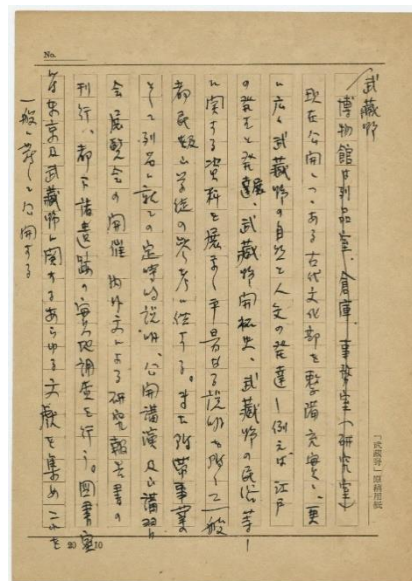 No.
武蔵野
博物館は列品室、倉庫、事務室(研究室)
現在公開しつゝある古代文化部を整備充実し、更
に広く武蔵野の自然と人文の発達―例えば江戸
の発生と発展、武蔵野開拓史、武蔵野の民俗等―
に関する資料を展示し平易なる説明を附して一般
都民類に学徒の参考に供する。また附帯事業
として列品に就ての定時的説明、公開講演及び講習
会展覧会の開催 内外文による研究報告書の
刊行、都下諸遺跡の実地調査を行う。図書室
は東京及武蔵野に関するあらゆる文献を集めこれを
一般に対して公開する
「武蔵野」原稿用紙
20 10